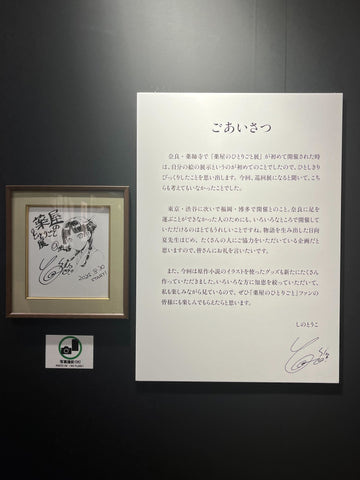 ごあいさつ
奈良・薬師寺で「薬屋のひとりごと展」が初めて開催された時
は、自分の絵の展示というのが初めてのことでしたので、ひとしきり
びっくりしたことを思い出します。今回、巡回展になると聞いて、こち
らも考えてもいなかったことでした。
東京・渋谷に次いで福岡・博多で開催とのこと。奈良に足を
運ぶことができなかった人のためにも、いろいろなところで開催して
いただけるのはとてもうれしいことですね。物語を生み出した日向
夏先生はじめ、たくさんの人にご協力をいただいている企画だと
思いますので、皆さんにお礼を言いたいです。
また、今回は原作小説のイラストを使ったグッズも新たにたくさん
作っていただきました。いろいろな方に知恵を絞っていただいて、
私も楽しみながら見ているので、ぜひ「薬屋のひとりごと」ファンの
皆様にも楽しんでもらえたらと思います。
しのとうこ
薬屋の
ひとりごと
展
写真撮影OK